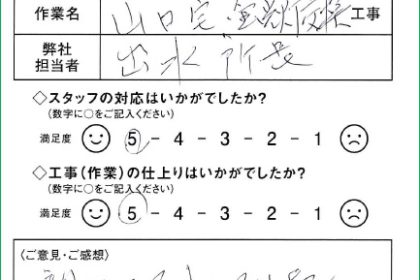 作業名 山口宅 工事
弊社
担当者 出水所長
◇スタッフの対応はいかがでしたか?
(数字に○をご記入ください)
満足度 5 - 4 - 3 - 2 - 1
◇工事(作業)の仕上りはいかがでしたか?
(数字に○をご記入ください)
満足度 5 - 4 - 3 - 2 - 1
(ご意見・ご感想)